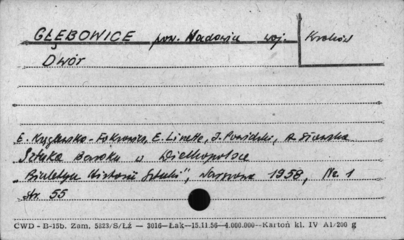 GŁĘBOWICE pow. Wadowice woj. Kraków
Dwór
E. Linette, J.
Sztuka Baroku w Wielkopolsce
"Biuletyn Historii Sztuki", Warszawa 1958, Nr. 1
str. 55
CWD - D-15b. Zam. 5823/S/Lż — 3016—Łąk—15.11.56—4.000.000—Karton kl. IV A1/200 g